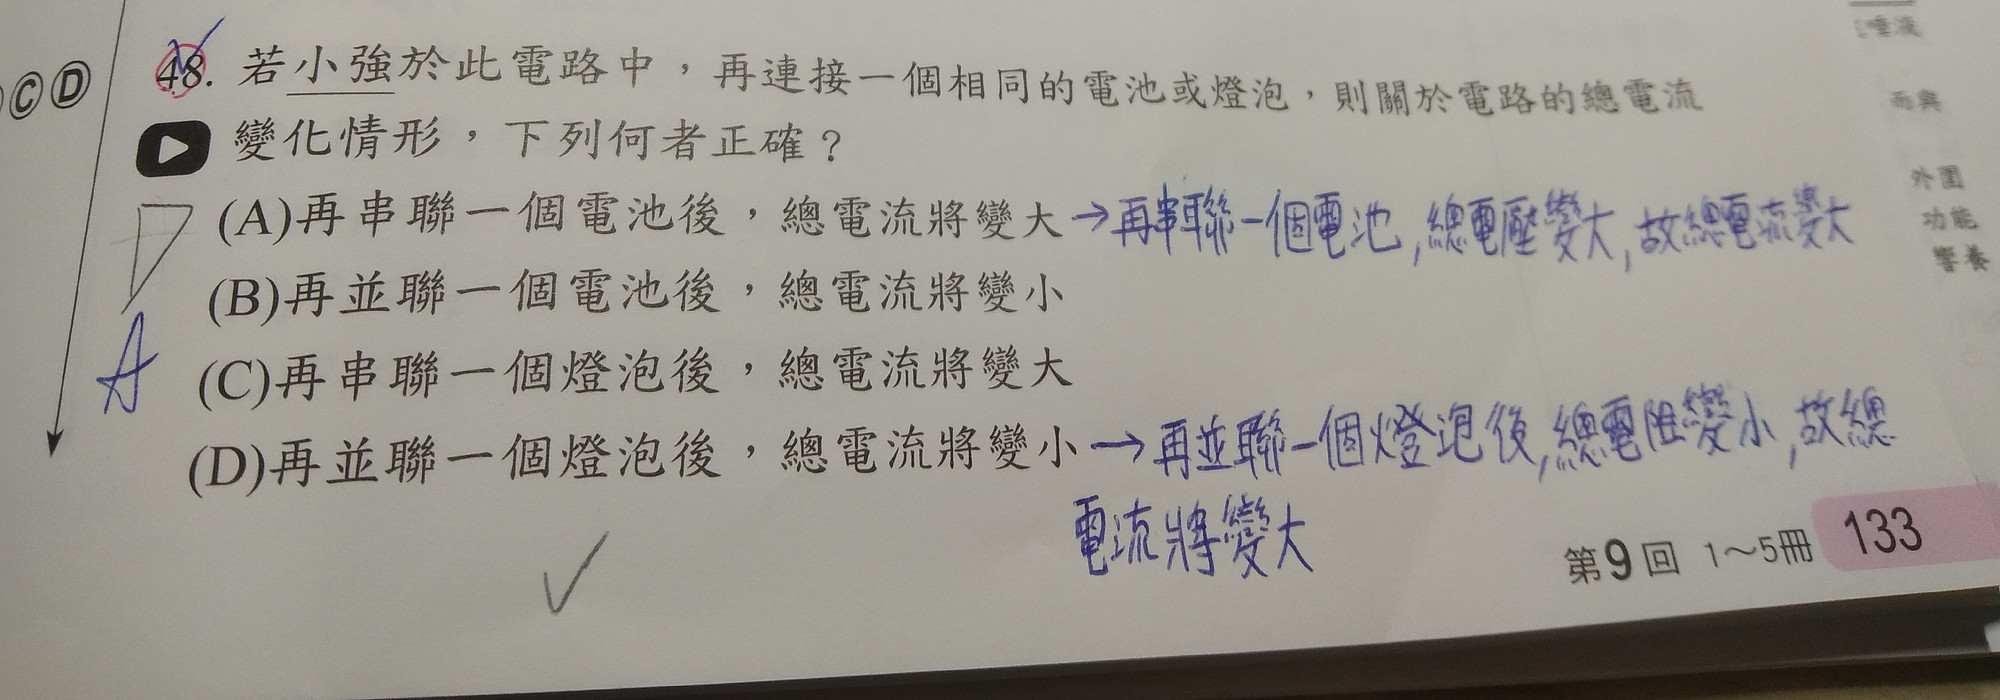 48. 若小強於此電路中，再連接一個相同的電池或燈泡，則關於電路的總電流
變化情形，下列何者正確？
(A)再串聯一個電池後，總電流將變大→再串聯一個電池,總電壓變大,故總電流變大
(B)再並聯一個電池後，總電流將變小
(C)再串聯一個燈泡後，總電流將變大
(D)再並聯一個燈泡後，總電流將變小→再並聯一個燈泡後,總電阻變小,故總
電流將變大
D
A
Ⓒ Ⓓ
外圍
功能
營養
第9回 1～5冊 133